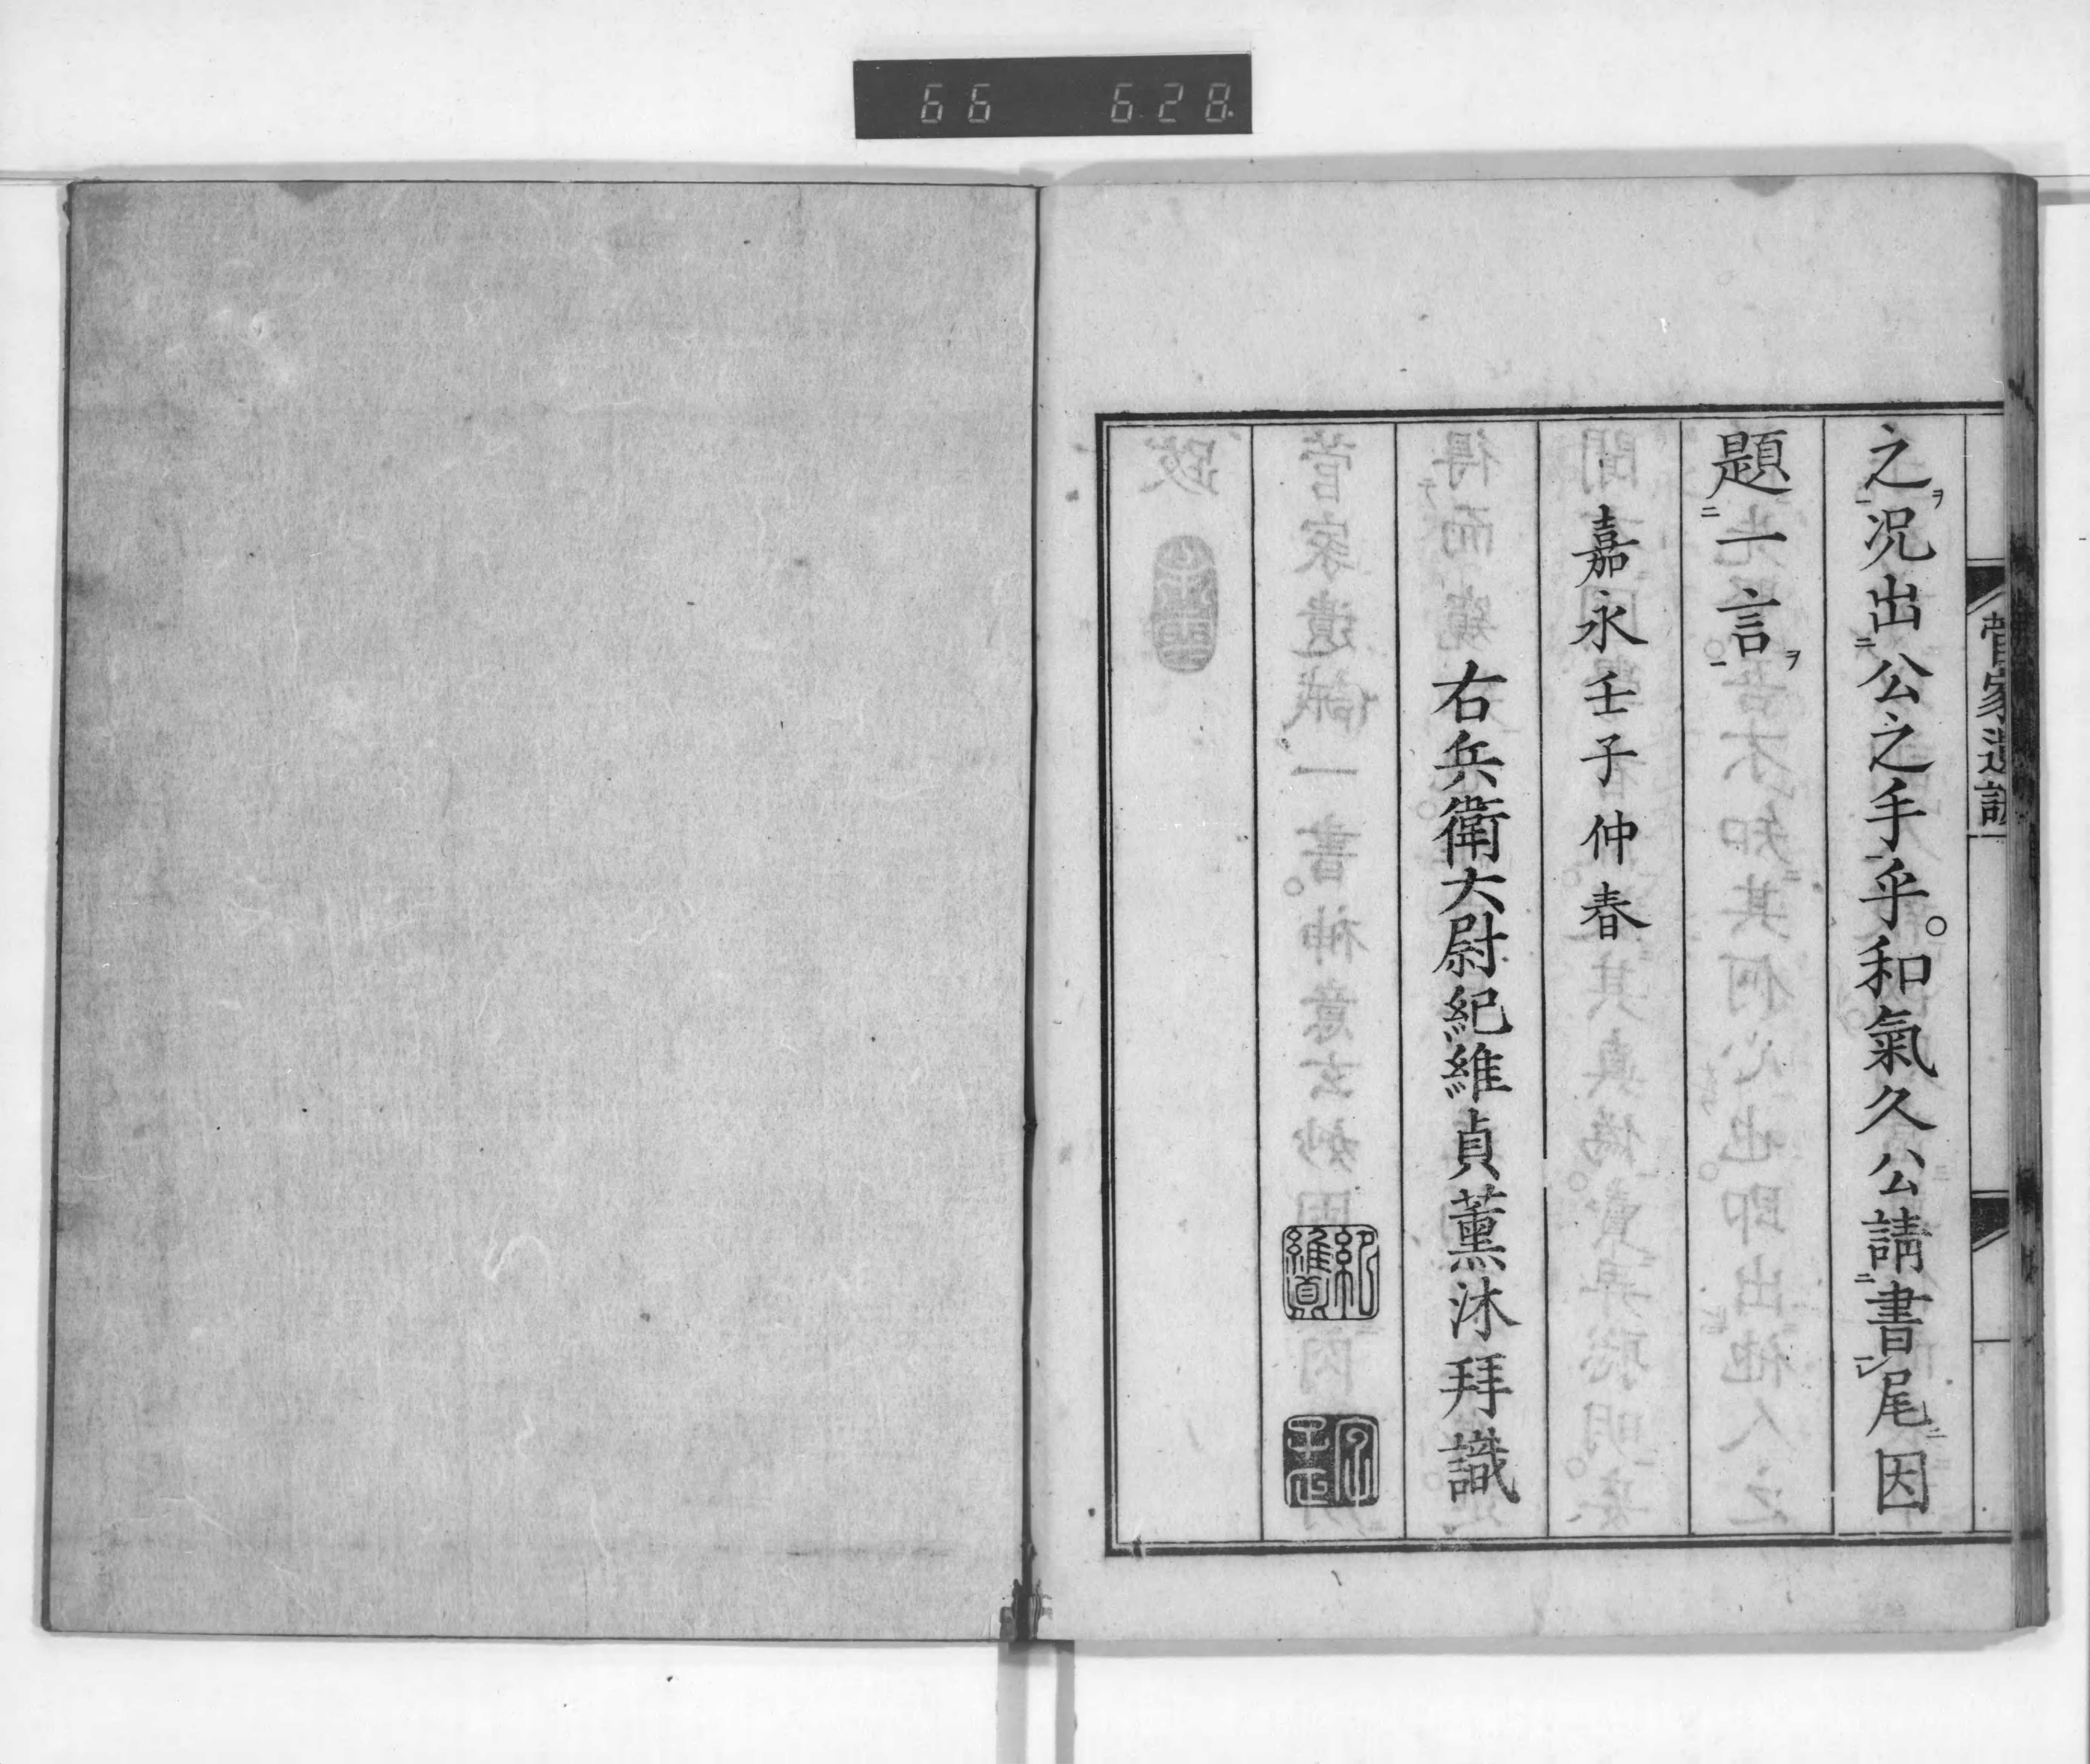 66 628
菅家遺誡
之ヲ況出公之手乎。和氣久公請書尾因
題一言ヲ
嘉永壬子仲春
右兵衛大尉紀維貞薰沐拜識
紀維貞